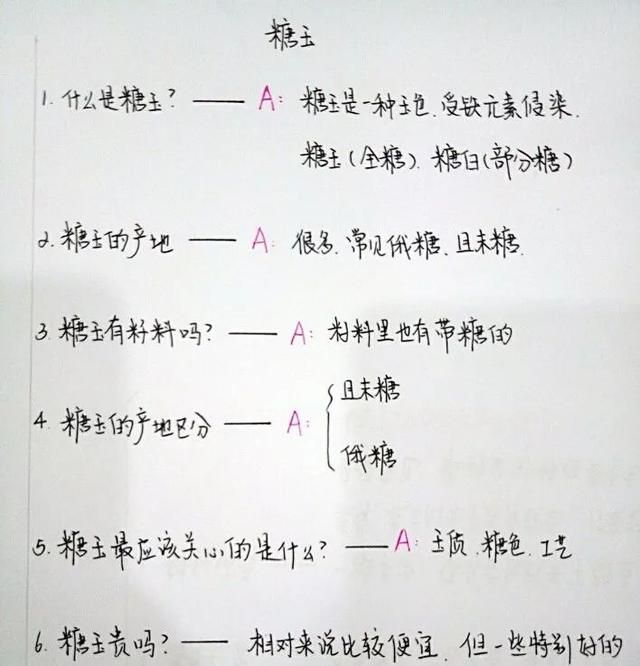 糖玉
1. 什么是糖玉? —— A: 糖玉是一种玉色、受铁元素侵染.
糖玉(全糖). 糖白(部分糖)
2. 糖玉的产地 —— A: 很多、常见俄糖、且末糖.
3. 糖玉有籽料吗? —— A: 籽料里也有带糖的
4. 糖玉的产地区分 —— A: { 且末糖
俄糖
5. 糖玉最应该关心的是什么? —— A: 玉质、糖色、工艺
6. 糖玉贵吗? —— 相对来说比较便宜、但一些特别好的